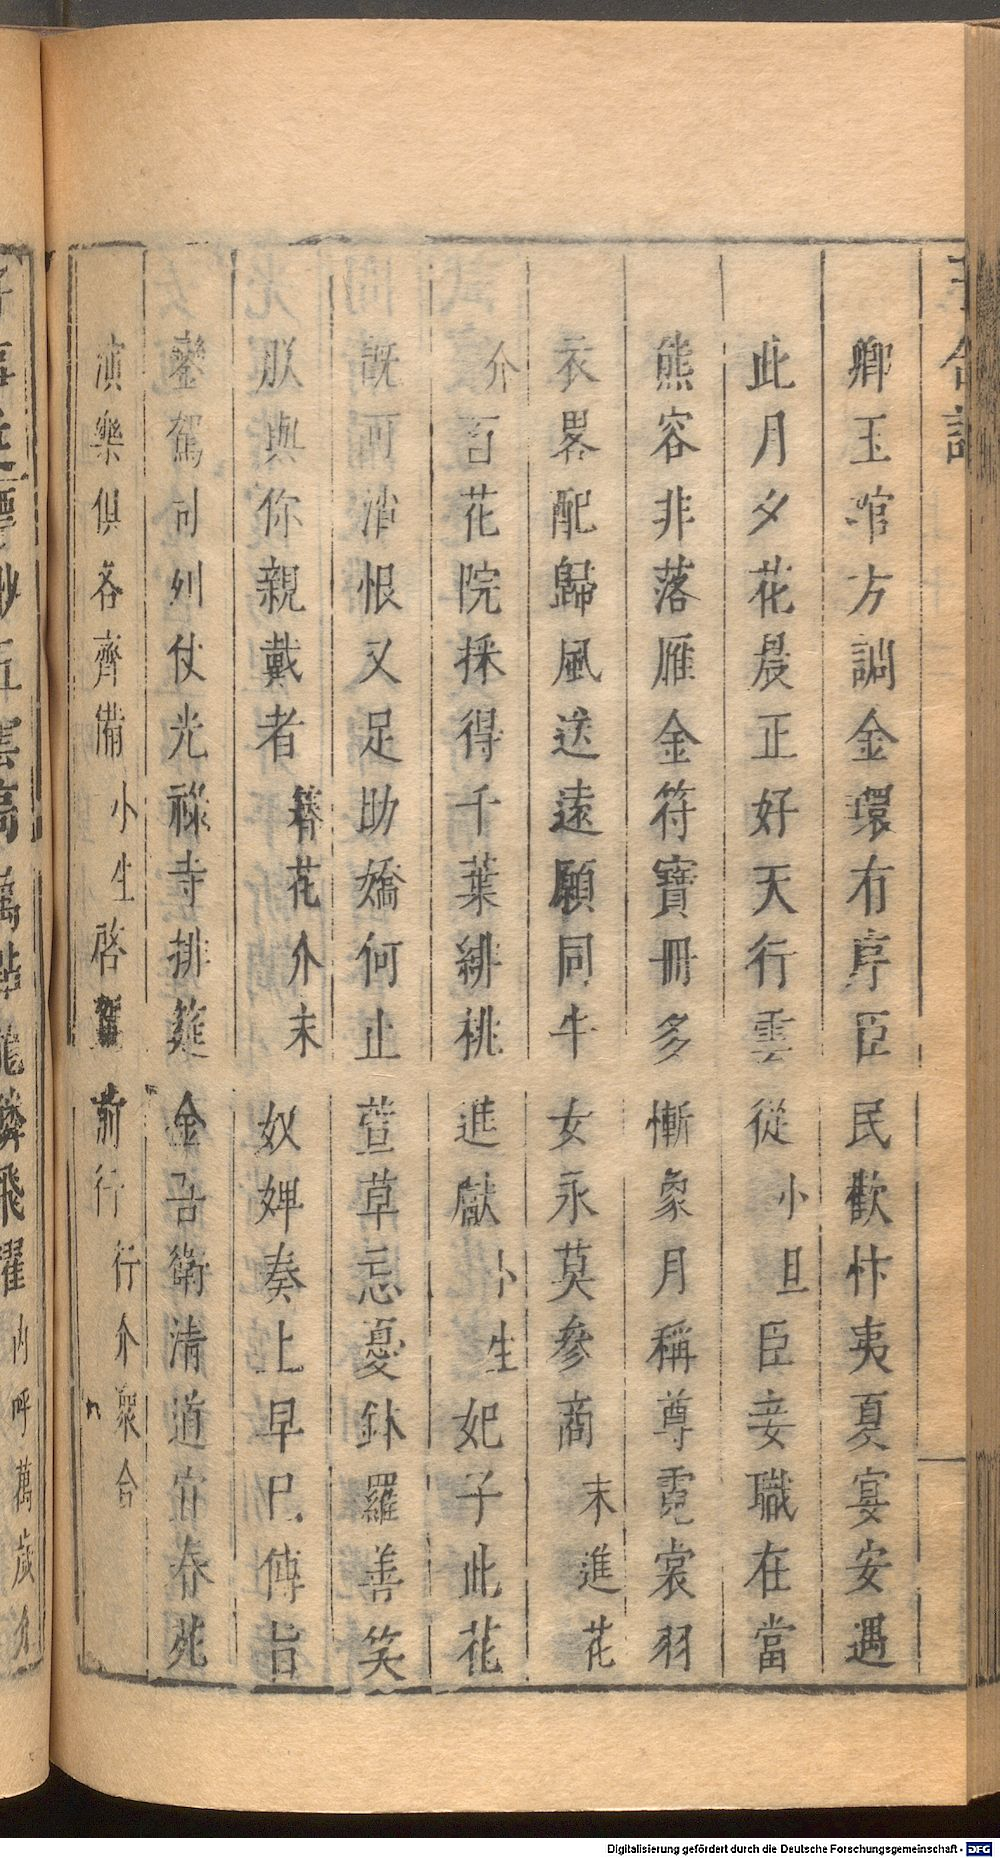 卿玉琯方調金環有序臣民歡忭夷夏宴安遇
此月夕花晨正好天行雲從小旦臣妾職在當
熊容非落雁金符寶冊多慚象月稱尊霓裳羽
衣畧配歸風送遠願同牛女永莫參商末進花
介百花院採得千葉緋桃進獻小生妃子此花
既可消恨又足助嬌何止萱草忘憂鉢羅善笑
朕與你親戴者簪花介末奴婢奏上早巳傳旨
鑾駕司列仗光祿寺排筵金吾衛清道宜春苑
演樂俱各齊備小生啓駕前行行介衆合
內呼萬歲介
Digitalisierung gefördert durch die Deutsche Forschungsgemeinschaft - DFG